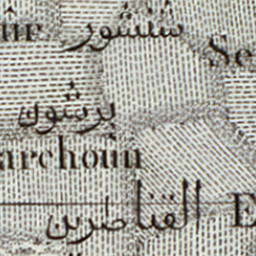 ûr شنشور
Se
برشوك
archoûn
القناطرين E